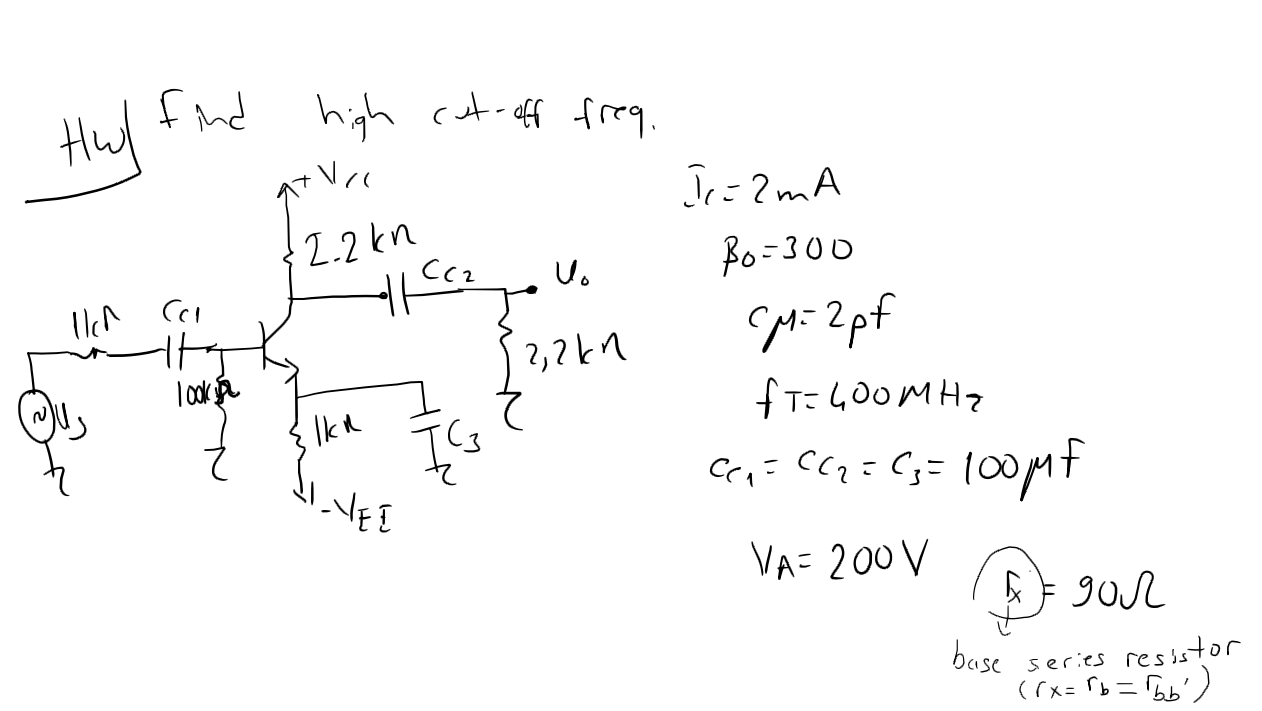 HW Find high cut-off freq.
+Vcc
2.2kΩ
CC2
Uo
1kΩ
CC1
100kΩ
Us
1kΩ
C3
2,2kΩ
-VEE
Ic=2mA
βo=300
Cμ=2pf
fT=400MHz
CC1 = CC2 = C3 = 100μf
VA= 200V
rx = 90Ω
base series resistor
(rx= rb = rbb')